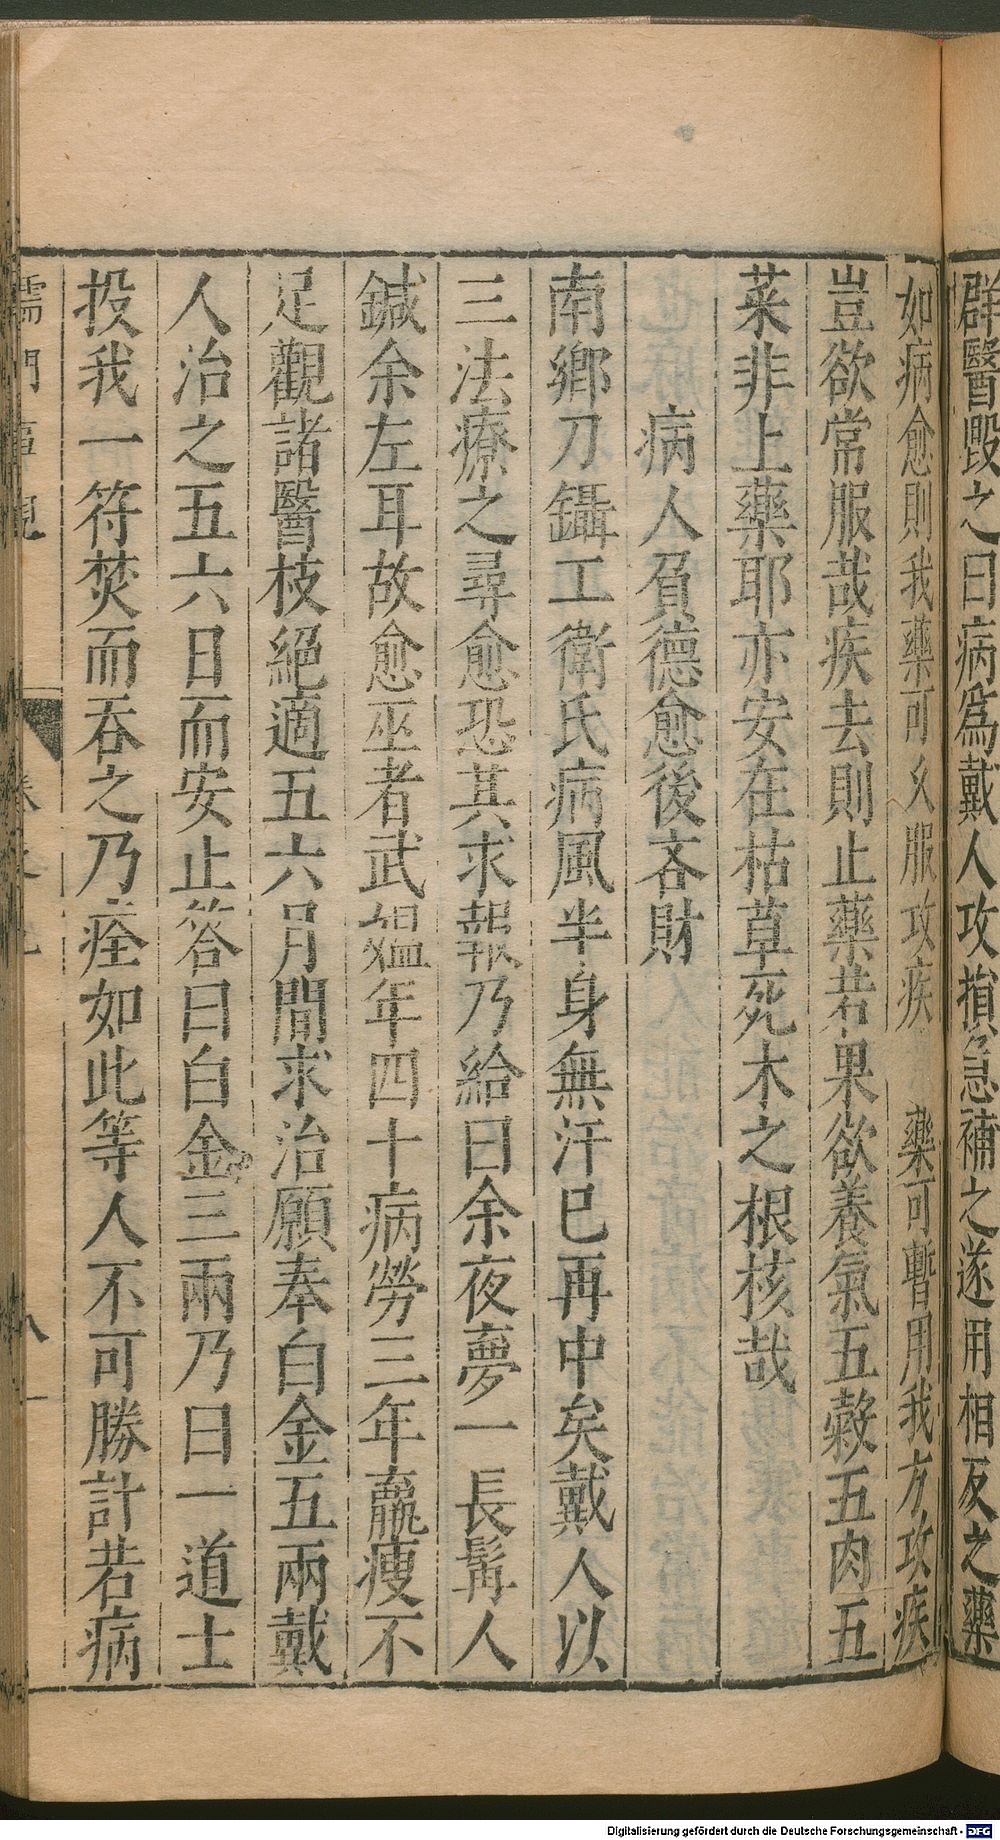 群醫毀之曰病為戴人攻損急補之遂用相反之藥
如病愈則我藥可久服攻疾藥可暫用我方攻疾
豈欲常服哉疾去則止藥若果欲養氣五穀五肉五
菜非上藥耶亦安在枯草死木之根核哉
病人負德愈後吝財
南鄉刀鑷工衛氏病風半身無汗已再中矣戴人以
三法療之尋愈恐其求報乃給曰余夜夢一長髯人
鍼余左耳故愈巫者武媪年四十病勞三年羸瘦不
足觀諸醫枝絕適五六月間求治願奉白金五兩戴
人治之五六日而安止答曰白金三兩乃曰一道士
投我一符焚而吞之乃痊如此等人不可勝計若病
儒門事親
卷之九
八
Digitalisierung gefördert durch die Deutsche Forschungsgemeinschaft - DFG